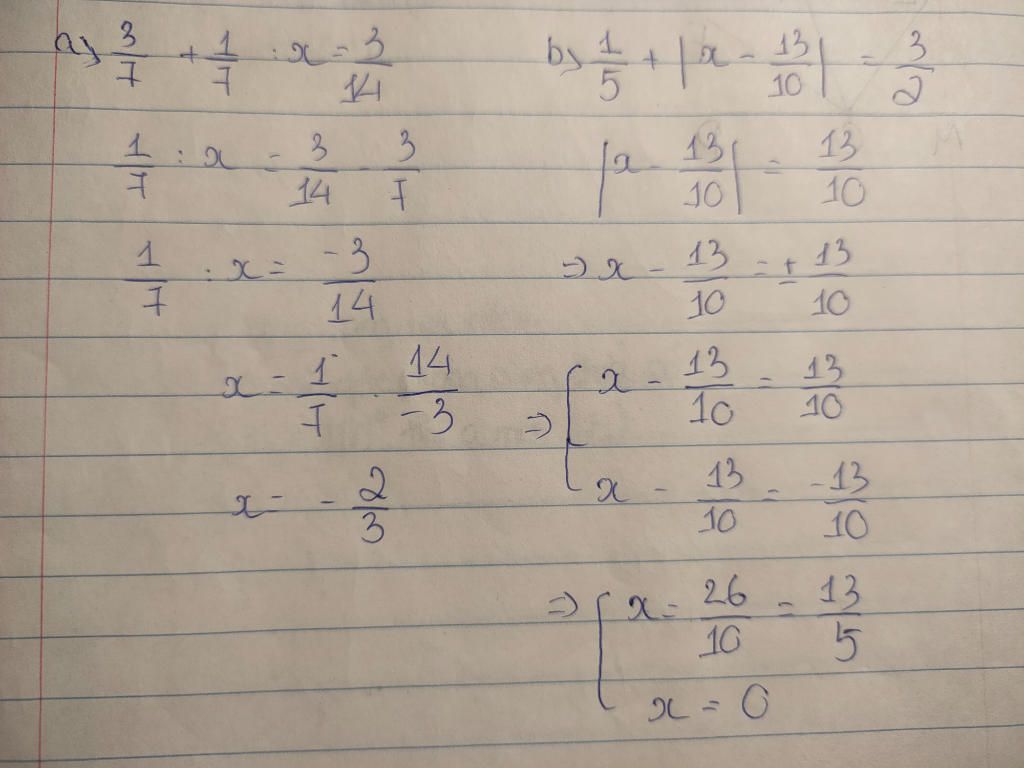 a) 3/7 + 1/7 : x = 3/14
1/7 : x = 3/14 - 3/7
1/7 : x = -3/14
x = 1/7 . 14/-3
x = - 2/3
b) 1/5 + |x - 13/10| = 3/2
|x - 13/10| = 13/10
=> x - 13/10 = ± 13/10
=> [ x - 13/10 = 13/10
x - 13/10 = -13/10
=> [ x = 26/10 = 13/5
x = 0